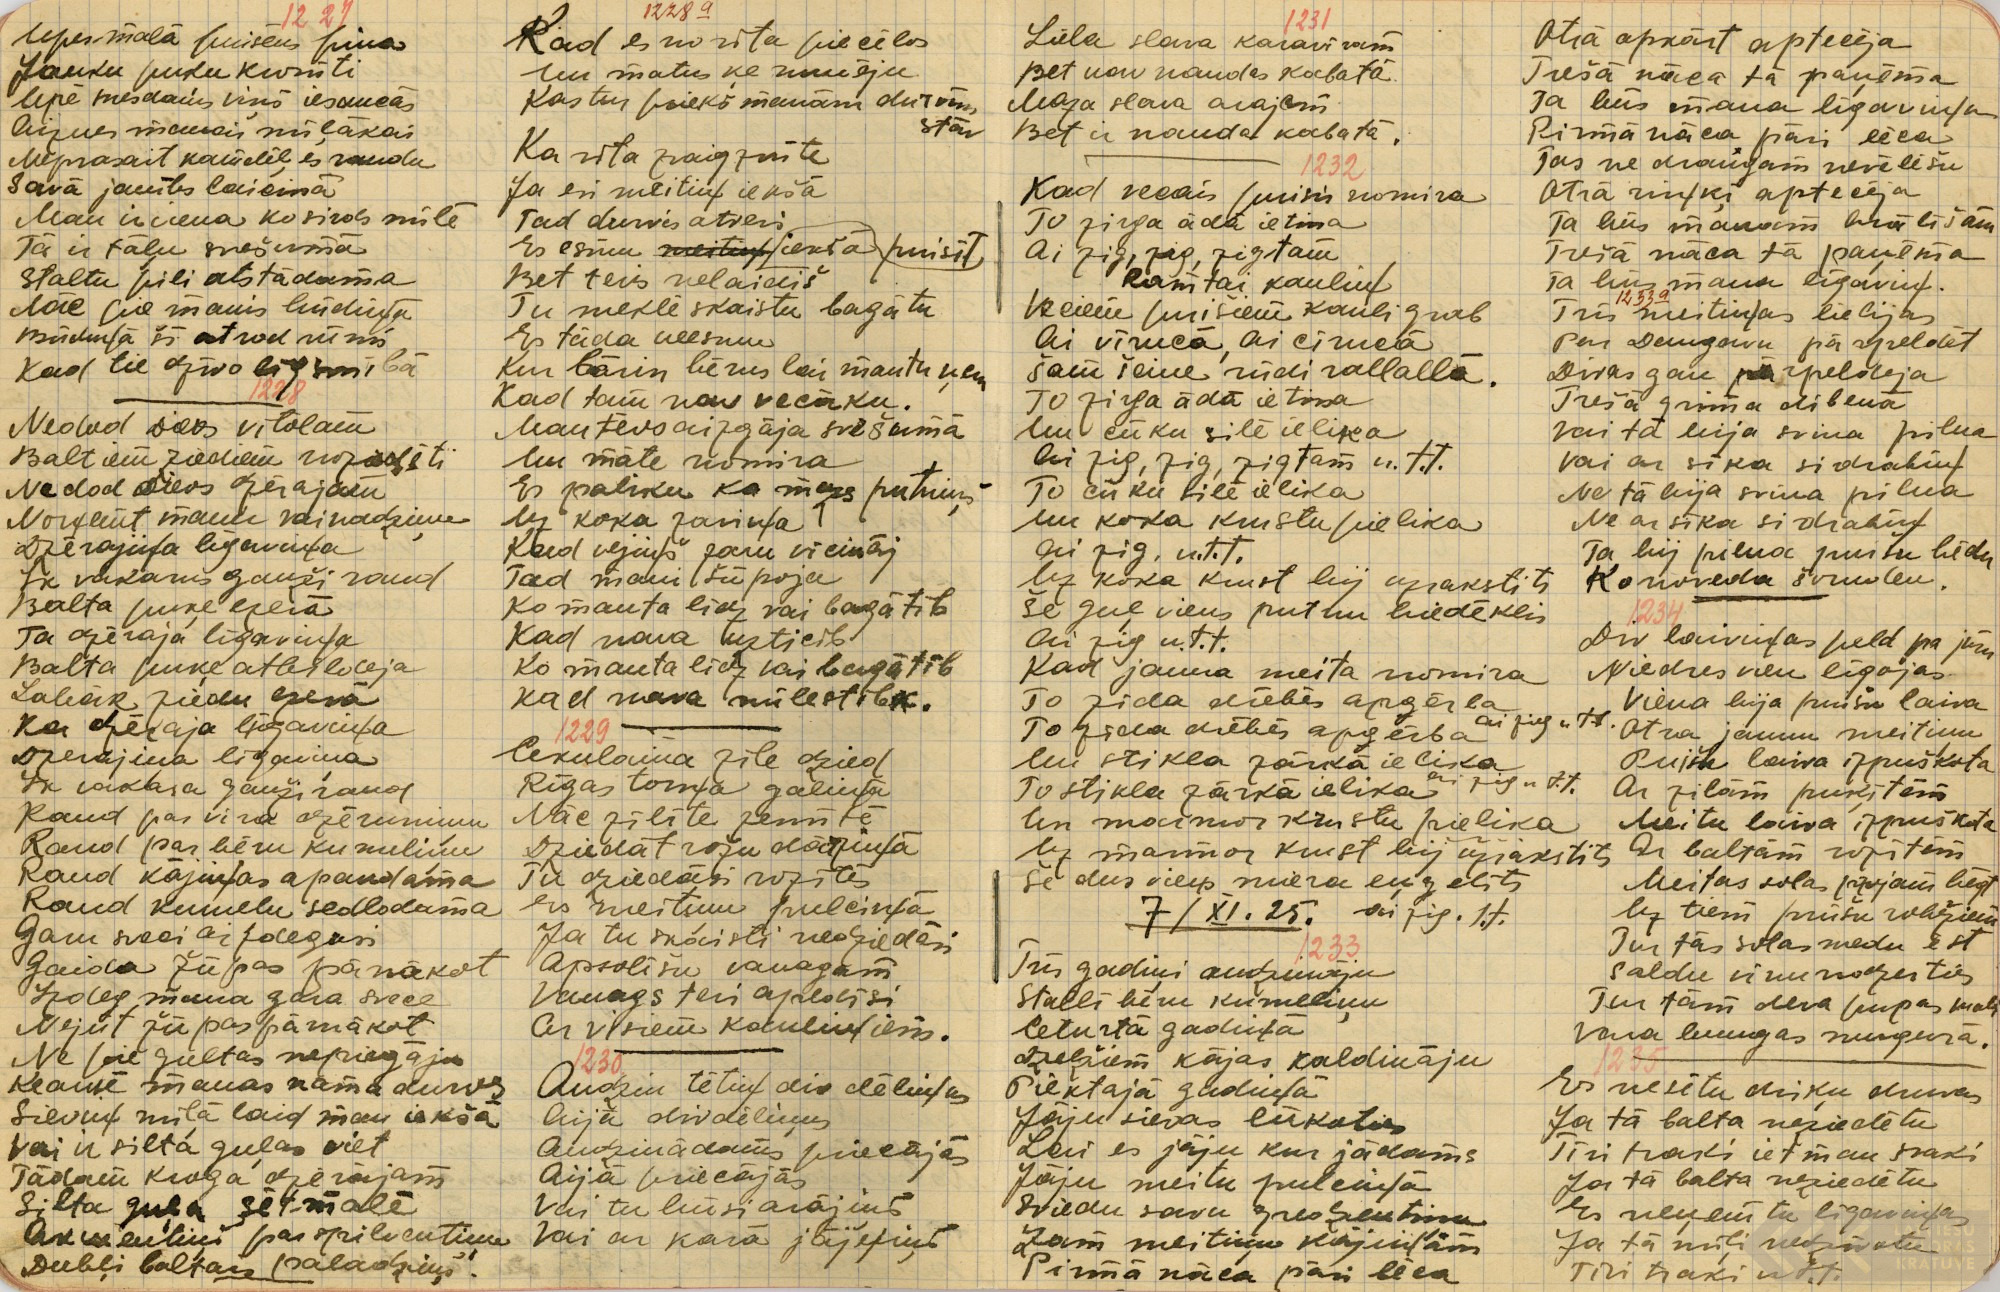 1227
Upes malā puisēns pina
Jauku puķu kroniti
Upē mesdams viņš iesaucās
Aiznes manai mīļākai
Neprasait kamdēļ es raudu
Savā jaunības laiciņā
Man ir viena ko sirds mīlē
Tā ir tālu svešumā
Staltu pili atstādama
Nāc pie manis būdiņā
Būdiņā šī atrod rūmi
Kad tie dzīvo līgsmībā
1228
Nedod Dievs vītolam
Baltiem ziediem noziedēti
Nedod Dievs dzērajam
Noņemt manu vainadziņu
Dzērājiņa līgaviņa
Ik vakarus gauži raud
Balta puķe ezerā
Ta dzēraja līgaviņa
Balta puķe atbildeja
Labāk ziedu ezerā
Ka dzēraja līgaviņa
Dzerajiņa līgaviņa
Ik vakara gauži raud
Raud par vira dzērumiņu
Raud par bēru kumeliņu
Raud kājiņas apaudama
Raud kumelu sedlodama
Garu sveci aizdegusi
Gaida žūpas pārnākot
Izdeg mana gara svece
Nejūt žūpas pārnākot
Ne pie gultas nepiegāju
Klauvē manas nama durvis
Sieviņ mīļā laid man iekšā
Vai ir silta guļas viet
Tādam kroga dzerajam
Silta guļa sētmalē
Akmentiņi par spilventiņu
Dubļi baltas paladziņš.
1228a
Kad es no rita piecēlos
Un matus ķemmēju
Kas tur priekš manām durvim
stāv
Ka rīta zvaigznite
Ja esi meitiņ iekšā
Tad durvis atveri
Es esmu meitiņ iekšā puisit
Bet tevis nelaidīš
Tu meklē skaistu bagātu
Es tāda neesmu
Kur bāriņ bērns lai mantu ņem
Kad tam nav vecāku.
Man tēvs aizgāja svešumā
Un māte nomira
Es paliku ka mazs putniņš
Uz koka zariņa
Kad vējiņš zaru vicināj
Tad mani šūpoja
Ko manta līdz vai bagātīb
Kad nava uzticīb
Ko manta līdz vai bagātīb
Kad nava mīlestībk.
1229
Cekulaiņa zīle dzied
Rīgas torņa galiņā
Nāc zīlite zemitē
Dziedāt rožu dārziņā
Tu dziedāsi rozītēs
Es meitiņu pulciņā
Ja tu skaisti nedziedāsi
Apsolīšu vanagam
Vanags tevi aprdīsi
Ar visiem kauliņiem.
1230
Audzin tētiņ div dēliņus
Aijā divdēliņus
Audzinādams priecājās
Aijā priecājās
Vai tu būsi arājiņš
Vai ar karā jājējiņš
1231
Liela slava karavīram
Bet nav naudas kabatā.
Maza slava arajam
Bet ir nauda kabatā.
1232
Kad vecais puisis nomira
To zirga ādā ietina
Ai zig, zig, zigtam
Ramtai kauliņ
Veciem puišiem kauli grab
Ai virucā, ai cirucā
Šam šeine rūdi rallallā.
To zirga ādā ietina
Un cūku silē ielika
Ai zig, zig, zigtam u.t.t.
To cūku silē ielika
Un koka krustu pielika
Ai zig, u.t.t.
Uz koka krust bij uzrakstīts
Še guļ viens putnu biedēklis
Ai zig u.t.t.
Kad jauna meita nomira
To zīda drēbēs apgērba
To zīda drēbēs apgērba ai zig u.t.t.
Un stikla zārkā ielika
To stikla zārkā ielika ai zig u.t.t.
Un marmor krustu pielika
Uz marmor krust bij uzrakstīts
Še dus viens miera eņgelīts
7/XI.25. ai zig. t.t.
1233
Trīs gadiņi audzināju
Stallī bēru kumeliņu
Ceturtā gadiņā
Dzelžiem kājas kaldināju
Piektajā gadiņā
Jāju sievas lūkoties
Lai es jāju kur jādams
Jāju meitu pulciņā
Sviedu savu gredzentiņu
Zam meitiņu kājiņām
Pirmā nāca pāri lēca
Otrā apkārt aptecēja
Trešā nāca tā paņēma
Ta būs mana līgaviņa
Pirmā nāca pāri lēca
Tas ne draugam nevēlēšu
Otrā riņķi aptecēja
Ta būs manam brālišam
Trešā nāca tā paņēma
Ta būs mana līgaviņ.
1233a
Trīs meitiņas lielijas
Par Daugavu pārpeldēt
Divas gan pārpeldeja
Trešā grima dibenā
Vai tā bija svina pilna
Vai ar sīka sidrabiņ
Ne tā bija svina pilna
Ne ar sīka sidrabiņ
Ta bij pilna puišu bēdu
Ko noveda šoruden.
1234
Div laiviņas peld pa jūru
Niedres vien līgojas
Viena bija puišu laiva
Otra jaunu meitiņu
Puišu laiva izpuškota
Ar zilām puķitēm
Meitu laiva izpuškota
Ar baltām rozitēm
Meitas solas projam bēgt
Uz tiem puišu robežiem
Tur tās solas medu ēst
Saldu vīnu nodzerties
Tur tām deva pupas malt
Vara bungas mugurā.
1235
Es nesētu driķu druvas
Ja tā balta neziedētu
Tiri traki iet man svaki
Ja tā balta neziedētu
Es neņemtu līgaviņas
Ja tā mīļi nedzīvotu
Tiri traki u.t.t.